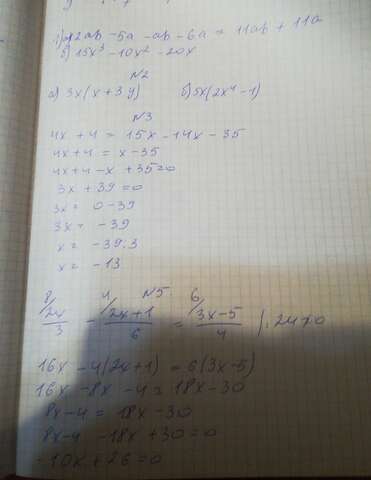 а) 12ab - 5a - ab - 6a = 11ab + 11a
б) 15x³ - 10x² - 20x
N2
а) 3x(x + 3y) б) 5x(2x⁴ - 1)
N3
4x + 4 = 15x - 14x - 35
4x + 4 = x - 35
4x + 4 - x + 35 = 0
3x + 39 = 0
3x = 0 - 39
3x = -39
x = -39:3
x = -13
N5
8/ 2x/3 - 4/ (2x+1)/6 = 6/ (3x-5)/4 |·24≠0
16x - 4(2x+1) = 6(3x-5)
16x - 8x - 4 = 18x - 30
8x - 4 = 18x - 30
8x - 4 - 18x + 30 = 0
-10x + 26 = 0